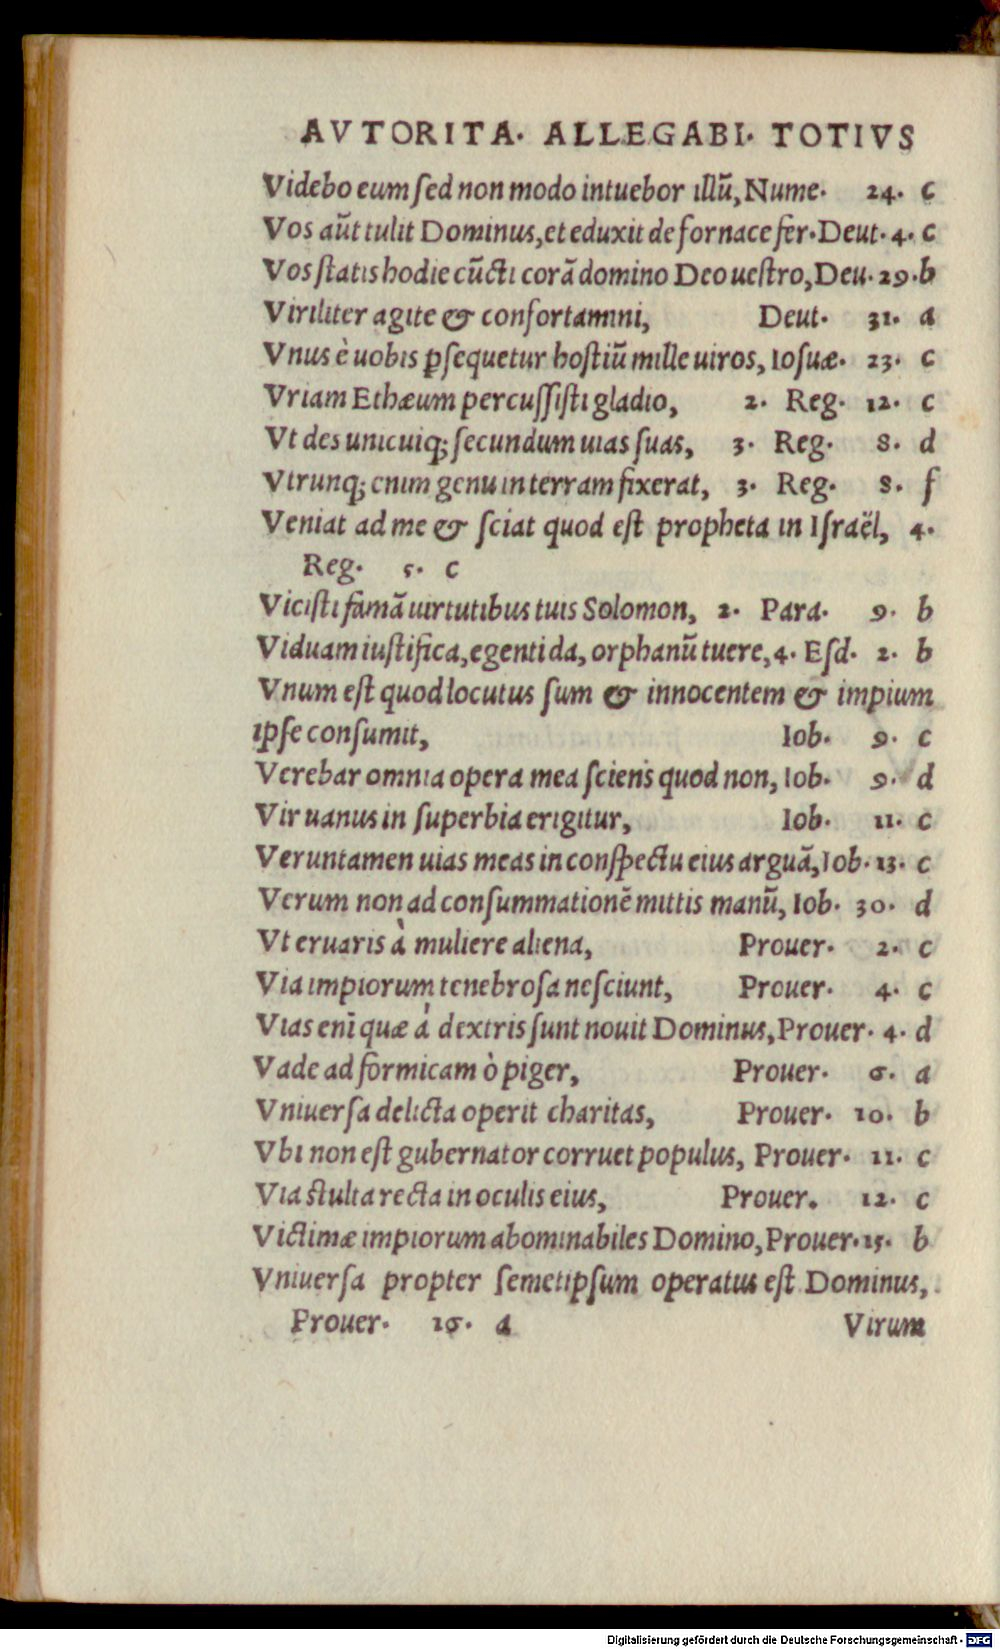 AVTORITA. ALLEGABI. TOTIVS
Videbo eum ſed non modo intuebor illũ, Nume. 24. c
Vos aũt tulit Dominus, et eduxit de fornace fer. Deut. 4. c
Vos ſtatis hodie cũcti corã domino Deo ueſtro, Deu. 29. b
Viriliter agite & confortamini, Deut. 31. a
Vnus è uobis ꝑſequetur hoſtiũ mille uiros, Ioſuæ. 23. c
Vriam Ethæum percuſſiſti gladio, 2. Reg. 12. c
Vt des unicuiq; ſecundum uias ſuas, 3. Reg. 8. d
Vtrunq; enim genu in terram fixerat, 3. Reg. 8. f
Veniat ad me & ſciat quod eſt propheta in Iſraël, 4.
Reg. 5. c
Viciſti famã uirtutibus tuis Solomon, 2. Para. 9. b
Viduam iuſtifica, egenti da, orphanũ tuere, 4. Eſd. 2. b
Vnum eſt quod locutus ſum & innocentem & impium
ipſe conſumit, Iob. 9. c
Verebar omnia opera mea ſciens quod non, Iob. 9. d
Vir uanus in ſuperbia erigitur, Iob. 11. c
Veruntamen uias meas in conſpectu eius arguã, Iob. 13. c
Verum non ad conſummationẽ mittis manũ, Iob. 30. d
Vt eruaris à muliere aliena, Prouer. 2. c
Via impiorum tenebroſa neſciunt, Prouer. 4. c
Vias enĩ quæ à dextris ſunt nouit Dominus, Prouer. 4. d
Vade ad formicam ò piger, Prouer. 6. a
Vniuerſa delicta operit charitas, Prouer. 10. b
Vbi non eſt gubernator corruet populus, Prouer. 11. c
Via ſtulta recta in oculis eius, Prouer. 12. c
Victimæ impiorum abominabiles Domino, Prouer. 15. b
Vniuerſa propter ſemetipſum operatus eſt Dominus,
Prouer. 16. a Virum
Digitalisierung gefördert durch die Deutsche Forschungsgemeinschaft - DFG